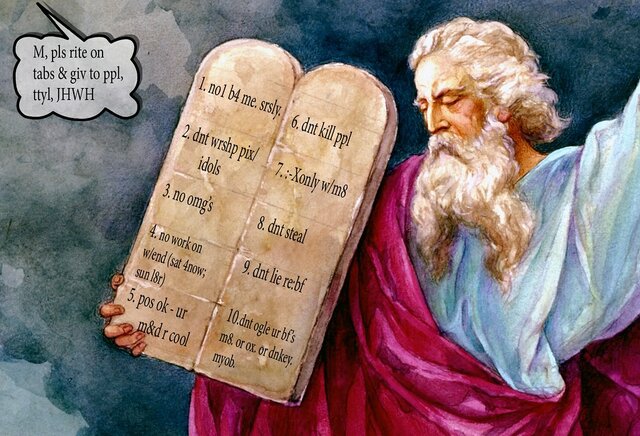 M, pls rite on
tabs & giv to ppl,
ttyl, JHWH
1. no1 b4 me. srsly.
2. dnt wrshp pix/
idols
3. no omg's
4. no work on
w/end (sat 4now;
sun l8r)
5. pos ok - ur
m&d r cool
6. dnt kill ppl
7. :-Xonly w/m8
8. dnt steal
9. dnt lie re:bf
10.dnt ogle ur bf's
m& or ox. or dnkey.
myob.